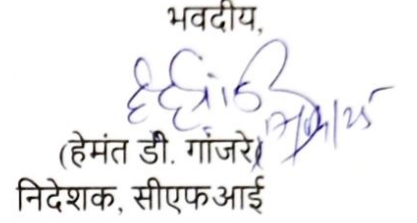 भवदीय,
(हेमंत डी. गांजरे)
निदेशक, सीएफआई